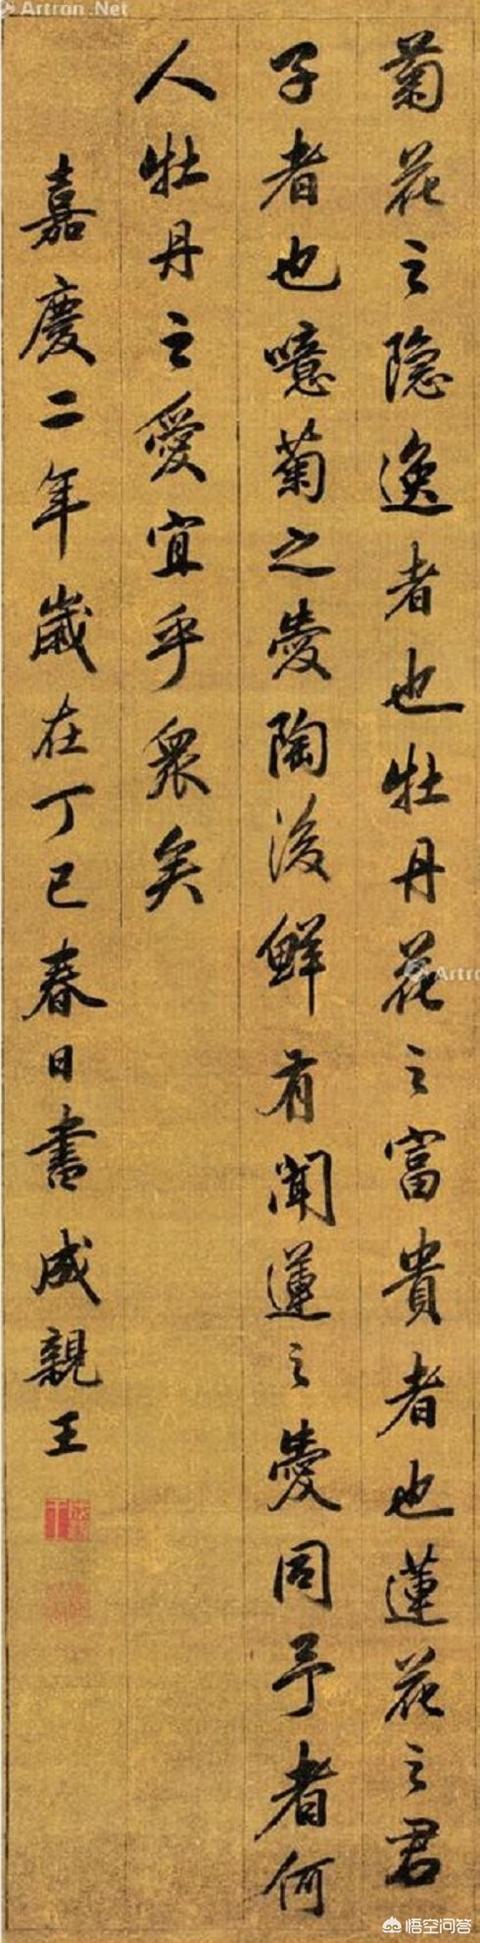 Artron.Net
菊花之隐逸者也牡丹花之富貴者也蓮花之君
子者也噫菊之愛陶後鮮有聞蓮之愛同予者何
人牡丹之愛宜乎衆矣
嘉慶二年歲在丁巳春日書成親王
Artron
悟空问答